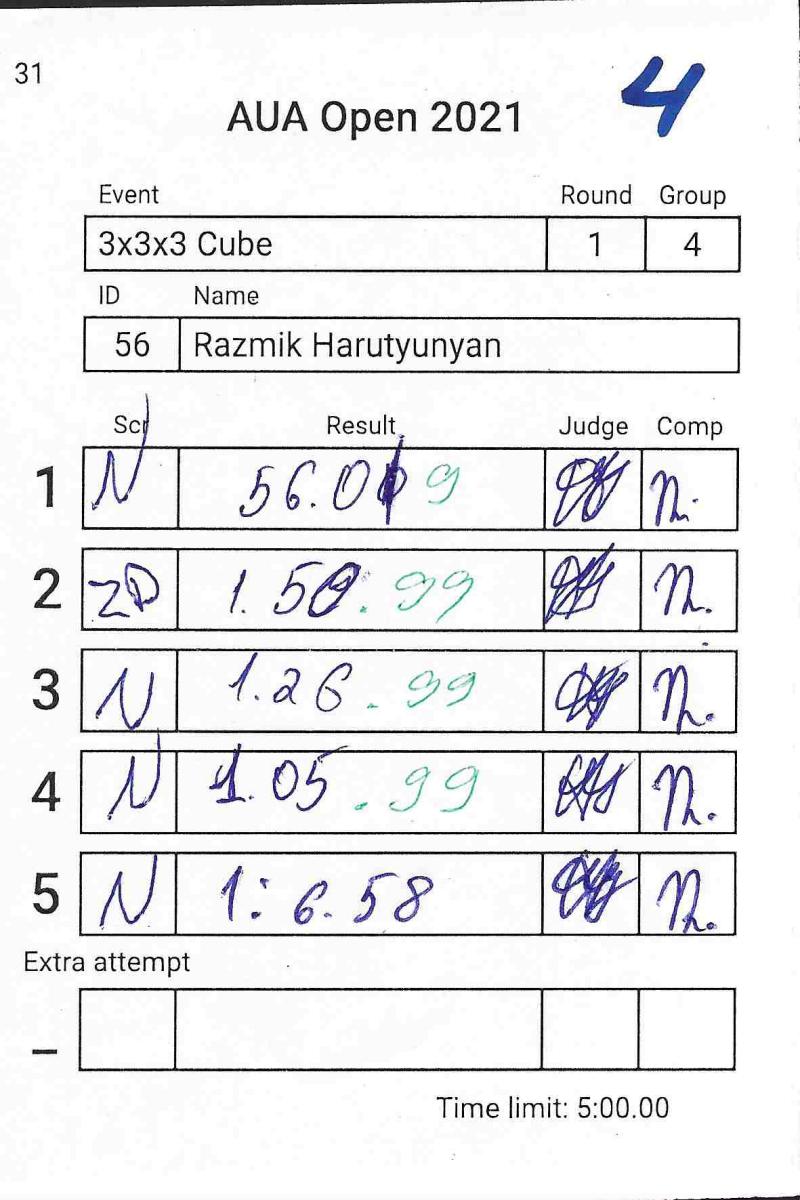 31
4
AUA Open 2021
Event Round Group
3x3x3 Cube 1 4
ID Name
56 Razmik Harutyunyan
Scr Result Judge Comp
1 N 56.0 9
2 ZD 1.50.99
3 N 1.26.99
4 N 1.05.99
5 N 1:6.58
Extra attempt
_
Time limit: 5:00.00